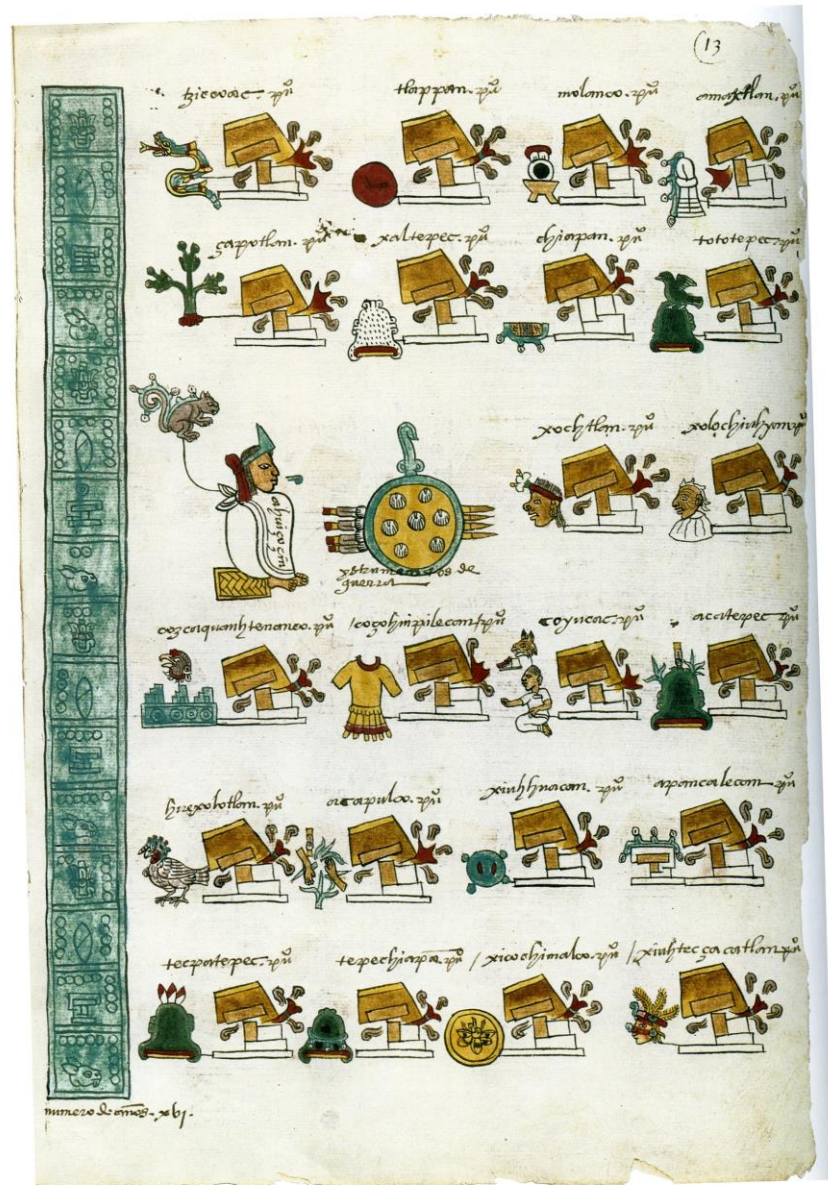 13
tziccoac. puo
tlappan. puo
molanco. puo
amaxtlan. puo
çapotlan. puo
xaltepec. puo
chiapan. puo
tototepec. puo
xochtlan. puo
xolochiuhyan. puo
ahuiçoçin
ystrumentos de
guerra
cozcaquauhtenanco. puo
/coçohuipilecan. puo
coyucac. puo
acatepec. puo
huexolotlan. puo
acapulco. puo
xiuhhuacan. puo
apancalecan. puo
tecpatepec. puo
tepechiapa. puo
/xicochimalco. puo
/xiuhteccacatlan. puo
numero de años. xvi.